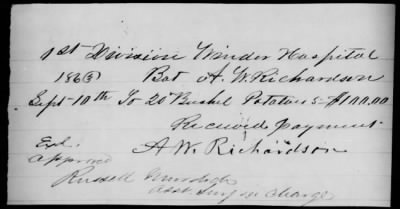 1st Division Winder Hospital
1863 Bot A. W. Richardson
Sept 10th To 20 Bushel Potatoes $100.00
Received payment
Exd. A W. Richardson
Approved
Russell Murdoch
asst Surg in charge